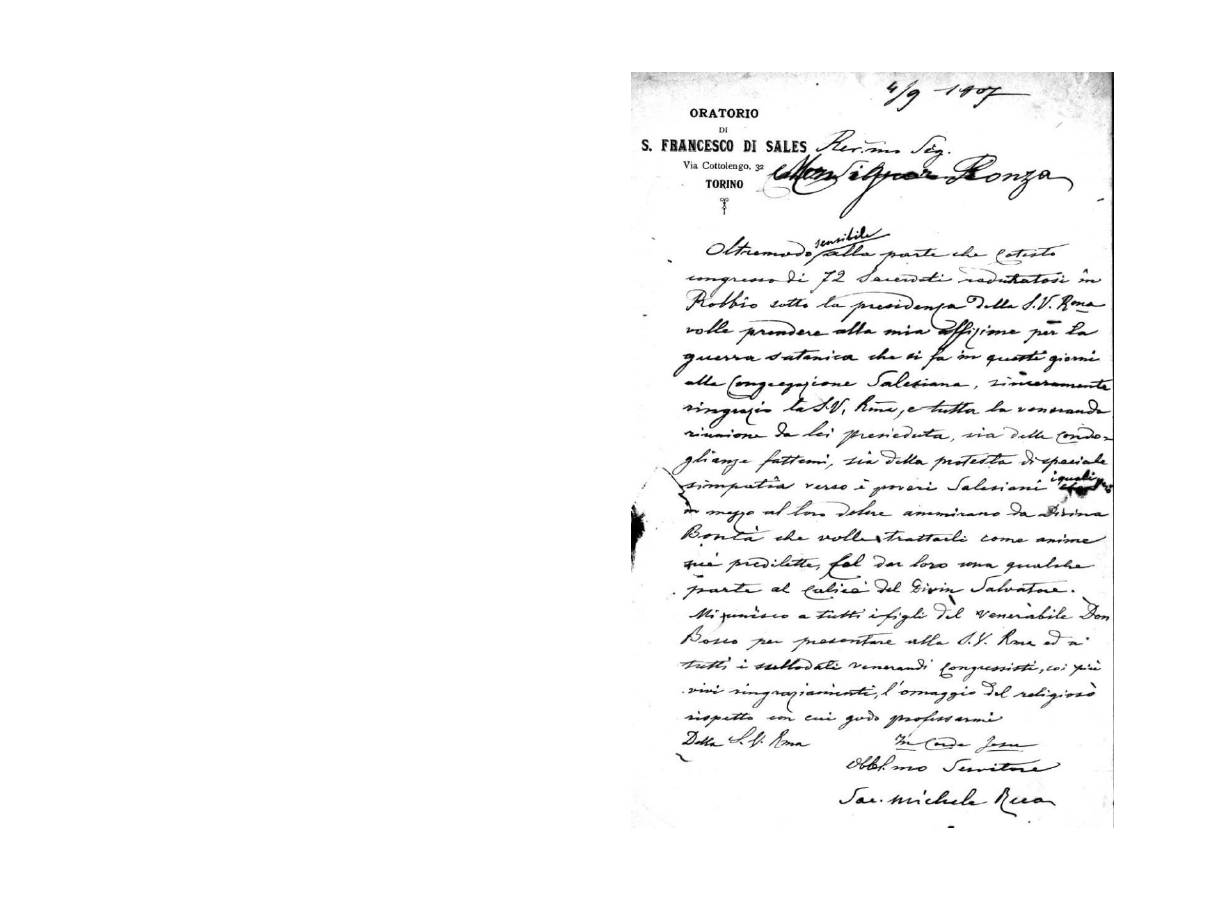 4/9 1907
ORATORIO
DI
S. FRANCESCO DI SALES
Via Cottolengo, 32
TORINO
Rev.mo Sig.
Monsignor Ronza
Oltremodo sensibile alla parte che cotesto
congresso di 72 Sacerdoti radunatosi in
Robbio sotto la presidenza della S.V. Rma
volle prendere alla mia afflizione per la
guerra satanica che si fa in questi giorni
alla Congregazione Salesiana, sinceramente
ringrazio la S.V. Rma, e tutta la veneranda
riunione da lei presieduta, sia delle condo-
glianze fattemi, sia della protesta di speciale
simpatia verso i poveri Salesiani i quali
in mezzo al loro dolore ammirano la Divina
Bontà che volle trattarli come anime
sue predilette, col dar loro una qualche
parte al Calice del Divin Salvatore.
Mi unisco a tutti i figli del Venerabile Don
Bosco per presentare alla S.V. Rma ed a
tutti i sullodati venerandi congressisti, coi più
vivi ringraziamenti, l'omaggio del religioso
rispetto con cui godo professarmi
Della S.V. Rma
In Corde Jesu
Obbl.mo Servitore
Sac. Michele Rua